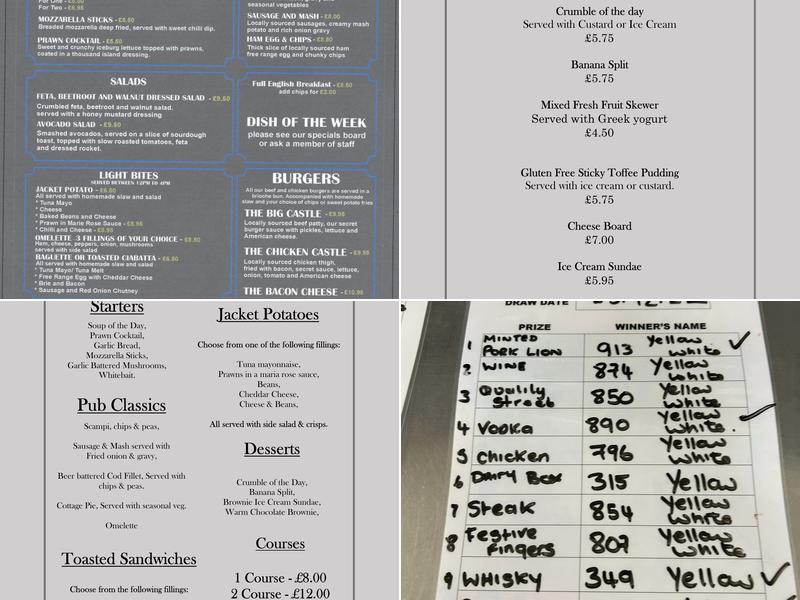 For One - £5.00
For Two - £6.95
MOZZARELLA STICKS - £5.50
Breaded mozzarella deep fried, served with sweet chilli dip.
PRAWN COCKTAIL - £5.50
Sweet and crunchy iceburg lettuce topped with prawns,
coated in a thousand island dressing.
SALADS
FETA, BEETROOT AND WALNUT DRESSED SALAD - £9.50
Crumbled feta, beetroot and walnut salad.
served with a honey mustard dressing
AVOCADO SALAD - £9.50
Smashed avocados, served on a slice of sourdough
toast, topped with slow roasted tomatoes, feta
and dressed rocket.
LIGHT BITES
SERVED BETWEEN 12PM TO 4PM
JACKET POTATO - £6.50
All served with homemade slaw and salad
* Tuna Mayo
* Cheese
* Baked Beans and Cheese
* Prawn in Marie Rose Sauce - £8.95
* Chilli and Cheese - £8.95
OMELETTE 3 FILLINGS OF YOUR CHOICE - £8.50
Ham, cheese, peppers, onion, mushrooms
served with side salad
BAGUETTE OR TOASTED CIABATTA - £6.50
All served with homemade slaw and salad
* Tuna Mayo/ Tuna Melt
* Free Range Egg with Cheddar Cheese
* Brie and Bacon
* Sausage and Red Onion Chutney
seasonal vegetables
SAUSAGE AND MASH - £8.00
Locally sourced sausages, creamy mash
potato and rich onion gravy
HAM EGG & CHIPS - £8.50
Thick slice of locally sourced ham
free range egg and chunky chips
Full English Breakfast - £8.50
add chips for £2.00
DISH OF THE WEEK
please see our specials board
or ask a member of staff
BURGERS
All our beef and chicken burgers are served in a
brioche bun. Accompanied with homemade
slaw and your choice of chips or sweet potato fries
THE BIG CASTLE - £9.95
Locally sourced beef patty, our secret
burger sauce with pickles, lettuce and
American cheese.
THE CHICKEN CASTLE - £9.95
Locally sourced chicken thigh,
fried with bacon, secret sauce, lettuce,
onion, tomato and American cheese
THE BACON CHEESE - £10.95
Crumble of the day
Served with Custard or Ice Cream
£5.75
Banana Split
£5.75
Mixed Fresh Fruit Skewer
Served with Greek yogurt
£4.50
Gluten Free Sticky Toffee Pudding
Served with ice cream or custard.
£5.75
Cheese Board
£7.00
Ice Cream Sundae
£5.95
Starters
Soup of the Day,
Prawn Cocktail,
Garlic Bread,
Mozzarella Sticks,
Garlic Battered Mushrooms,
Whitebait.
Pub Classics
Scampi, chips & peas,
Sausage & Mash served with
Fried onion & gravy,
Beer battered Cod Fillet, Served with
chips & peas.
Cottage Pie, Served with seasonal veg.
Omelette
Toasted Sandwiches
Choose from the following fillings:
Jacket Potatoes
Choose from one of the following fillings:
Tuna mayonnaise,
Prawns in a maria rose sauce,
Beans,
Cheddar Cheese,
Cheese & Beans,
All served with side salad & crisps.
Desserts
Crumble of the Day,
Banana Split,
Brownie Ice Cream Sundae,
Warm Chocolate Brownie,
Courses
1 Course - £8.00
2 Course - £12.00
DRAW DATE
PRIZE WINNER'S NAME
1 MINTED PORK LION 913 Yellow white
2 WINE 874 Yellow white
3 Quality Street 850 Yellow white
4 Vodka 890 Yellow white.
5 Chicken 796 Yellow white
6 DAIRY Box 315 Yellow
7 Steak 854 Yellow white
8 Festive Fingers 807 Yellow white
9 WHISKY 349 Yellow